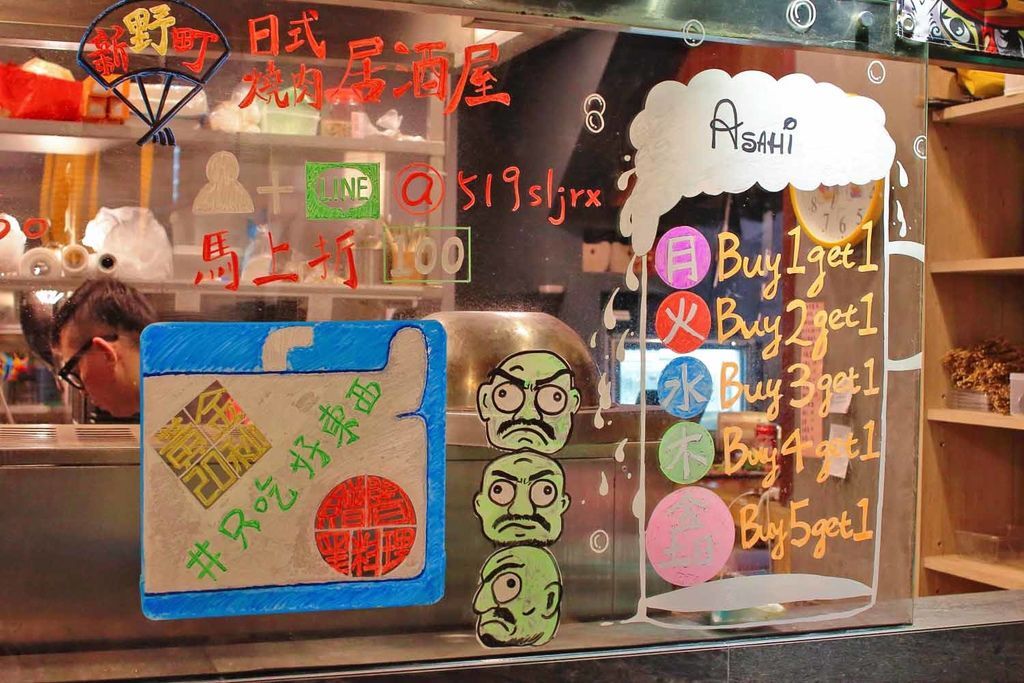 新野町
日式
燒肉
居酒屋
+ LINE @519sljrx
馬上折 100
#只吃好東西
ASAHI
月 Buy 1 get 1
火 Buy 2 get 1
水 Buy 3 get 1
木 Buy 4 get 1
金土日 Buy 5 get 1